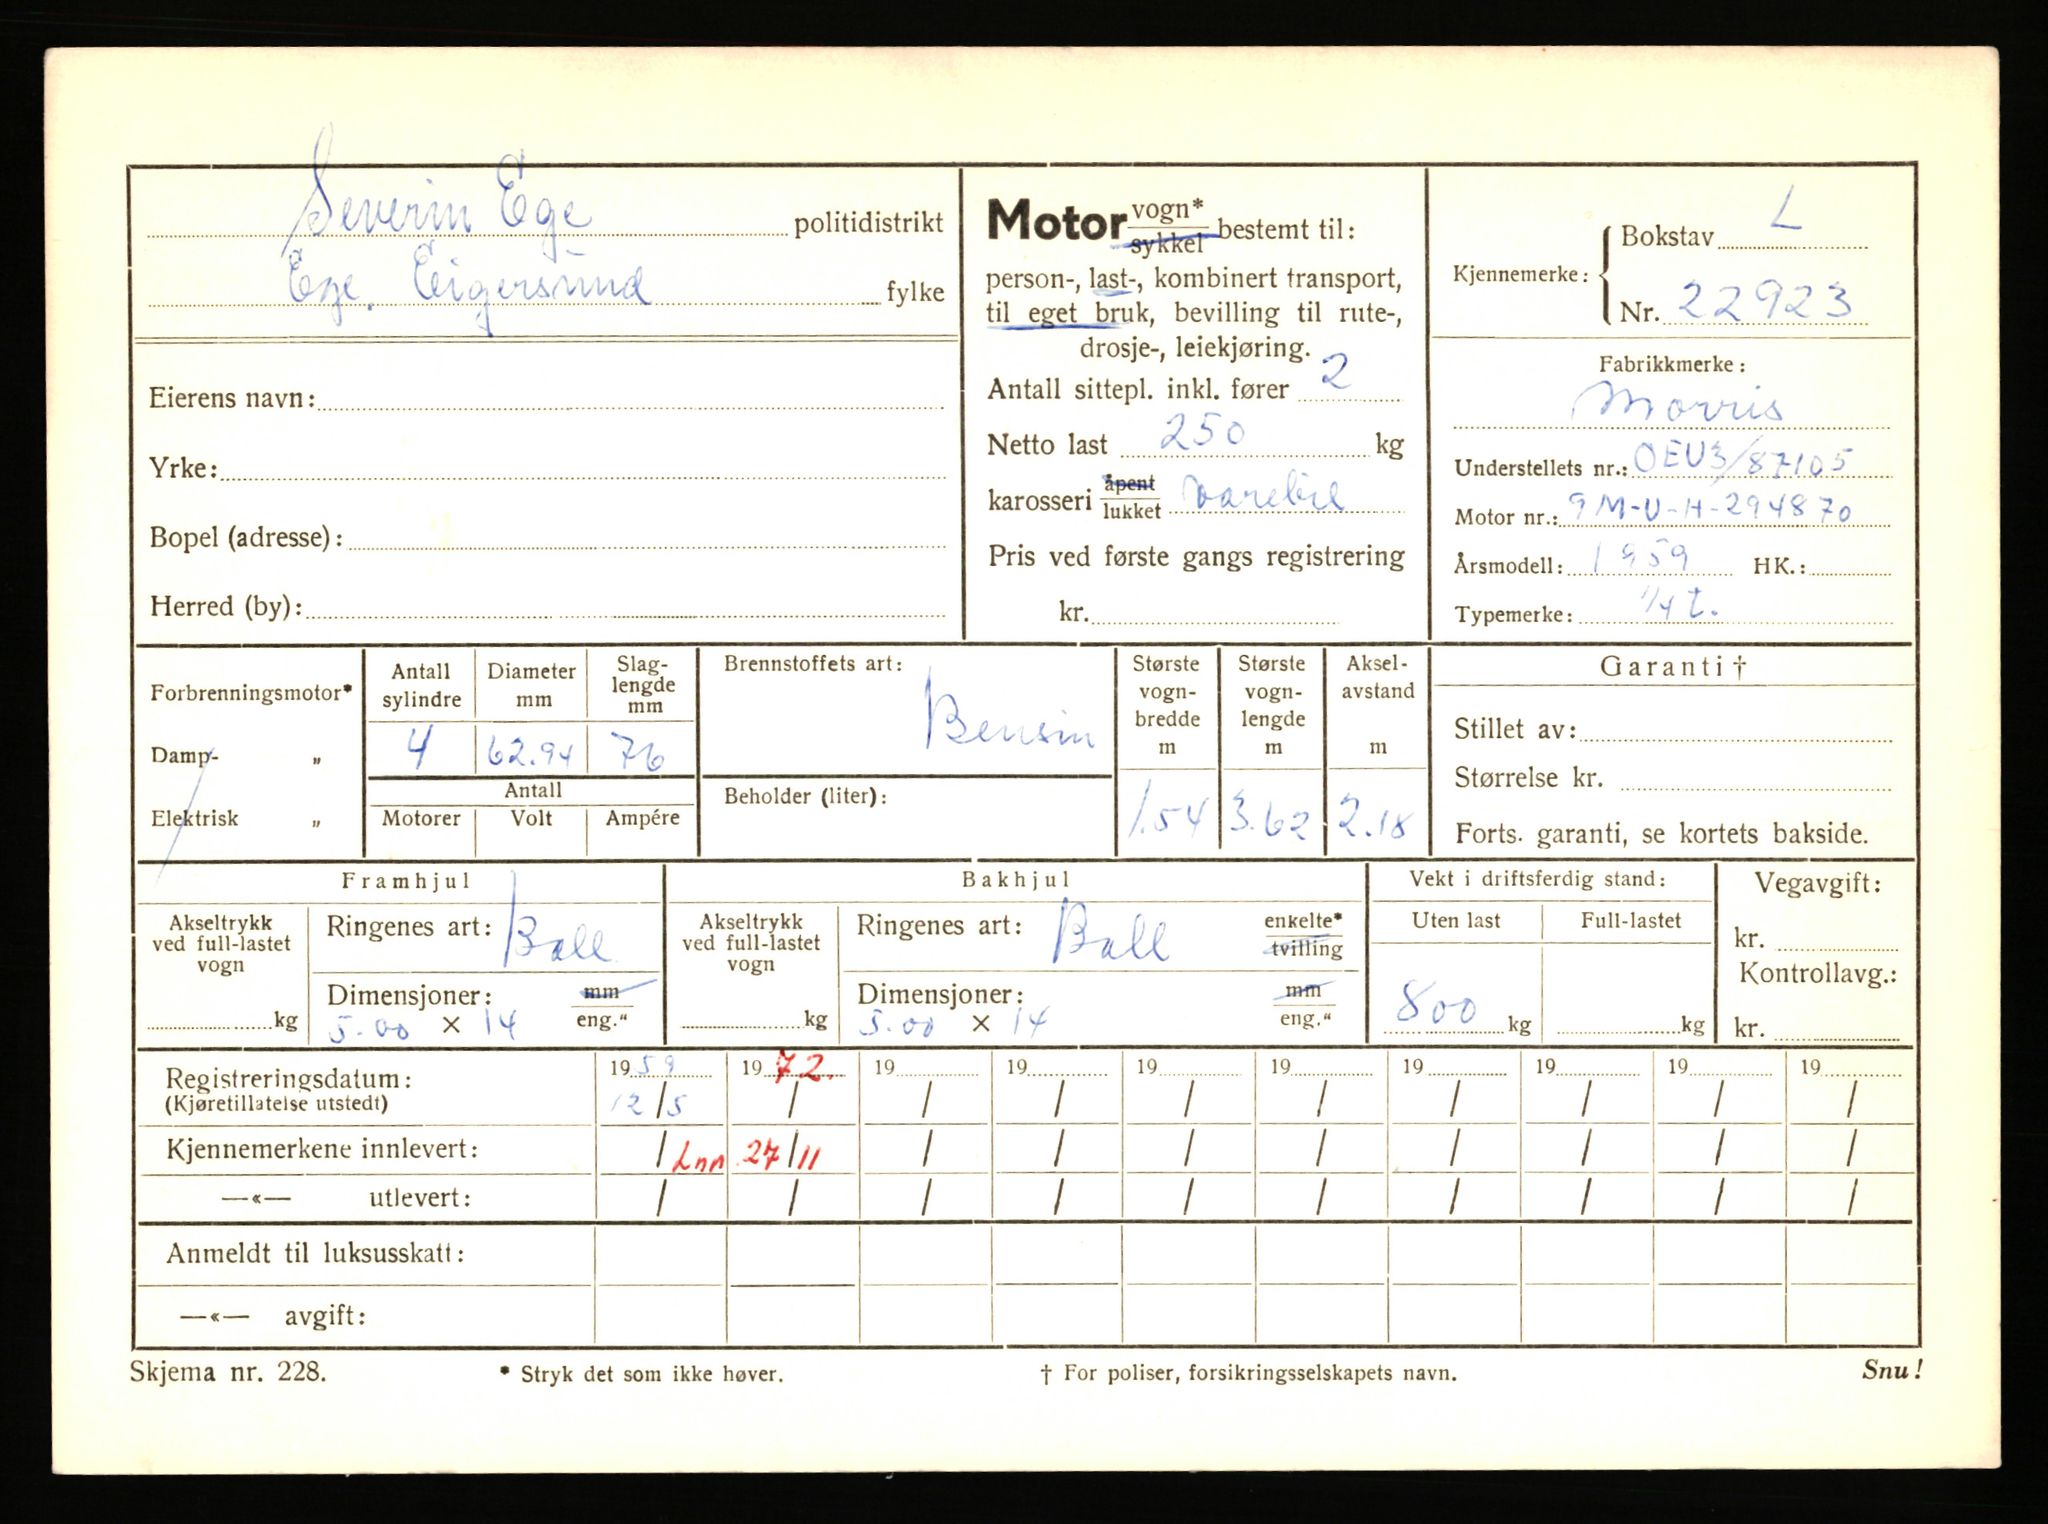 Severin Ege politidistrikt
Ege, Eigersund fylke
Eierens navn:
Yrke:
Bopel (adresse):
Herred (by):
Motor vogn* sykkel bestemt til:
person-, last-, kombinert transport,
til eget bruk, bevilling til rute-,
drosje-, leiekjøring.
Antall sittepl. inkl. fører 2
Netto last 250 kg
karosseri åpent lukket varebil
Pris ved første gangs registrering
kr.
Kjennemerke: Bokstav L
Nr. 22923
Fabrikkmerke:
Morris
Understellets nr.: OEU3/87105
Motor nr.: 9M-U-H-294870
Årsmodell: 1959 HK.:
Typemerke: 1/4 t.
Forbrenningsmotor*
Damp- „
Elektrisk „
Antall sylindre
Diameter mm
Slag-lengde mm
4 62.94 76
Antall
Motorer Volt Ampére
Brennstoffets art:
Bensin
Beholder (liter):
Største vogn-bredde m
1.54
Største vogn-lengde m
3.62
Aksel-avstand m
2.18
Garanti †
Stillet av:
Størrelse kr.
Forts. garanti, se kortets bakside.
Framhjul
Akseltrykk ved full-lastet vogn
kg
Ringenes art: Ball
Dimensjoner: mm eng."
5.00 × 14
Bakhjul
Akseltrykk ved full-lastet vogn
kg
Ringenes art: Ball enkelte* tvilling
Dimensjoner: mm eng."
5.00 × 14
Vekt i driftsferdig stand:
Uten last Full-lastet
800 kg kg
Vegavgift:
kr.
Kontrollavg.:
kr.
Registreringsdatum: 1959 1972. 19 19 19 19 19 19 19 19
(Kjøretillatelse utstedt) 12/5 / / / / / / / / /
Kjennemerkene innlevert: / Lnn 27/11 / / / / / / / /
—«— utlevert: / / / / / / / / / /
Anmeldt til luksusskatt:
—«— avgift:
Skjema nr. 228. * Stryk det som ikke høver. † For poliser, forsikringsselskapets navn. Snu!